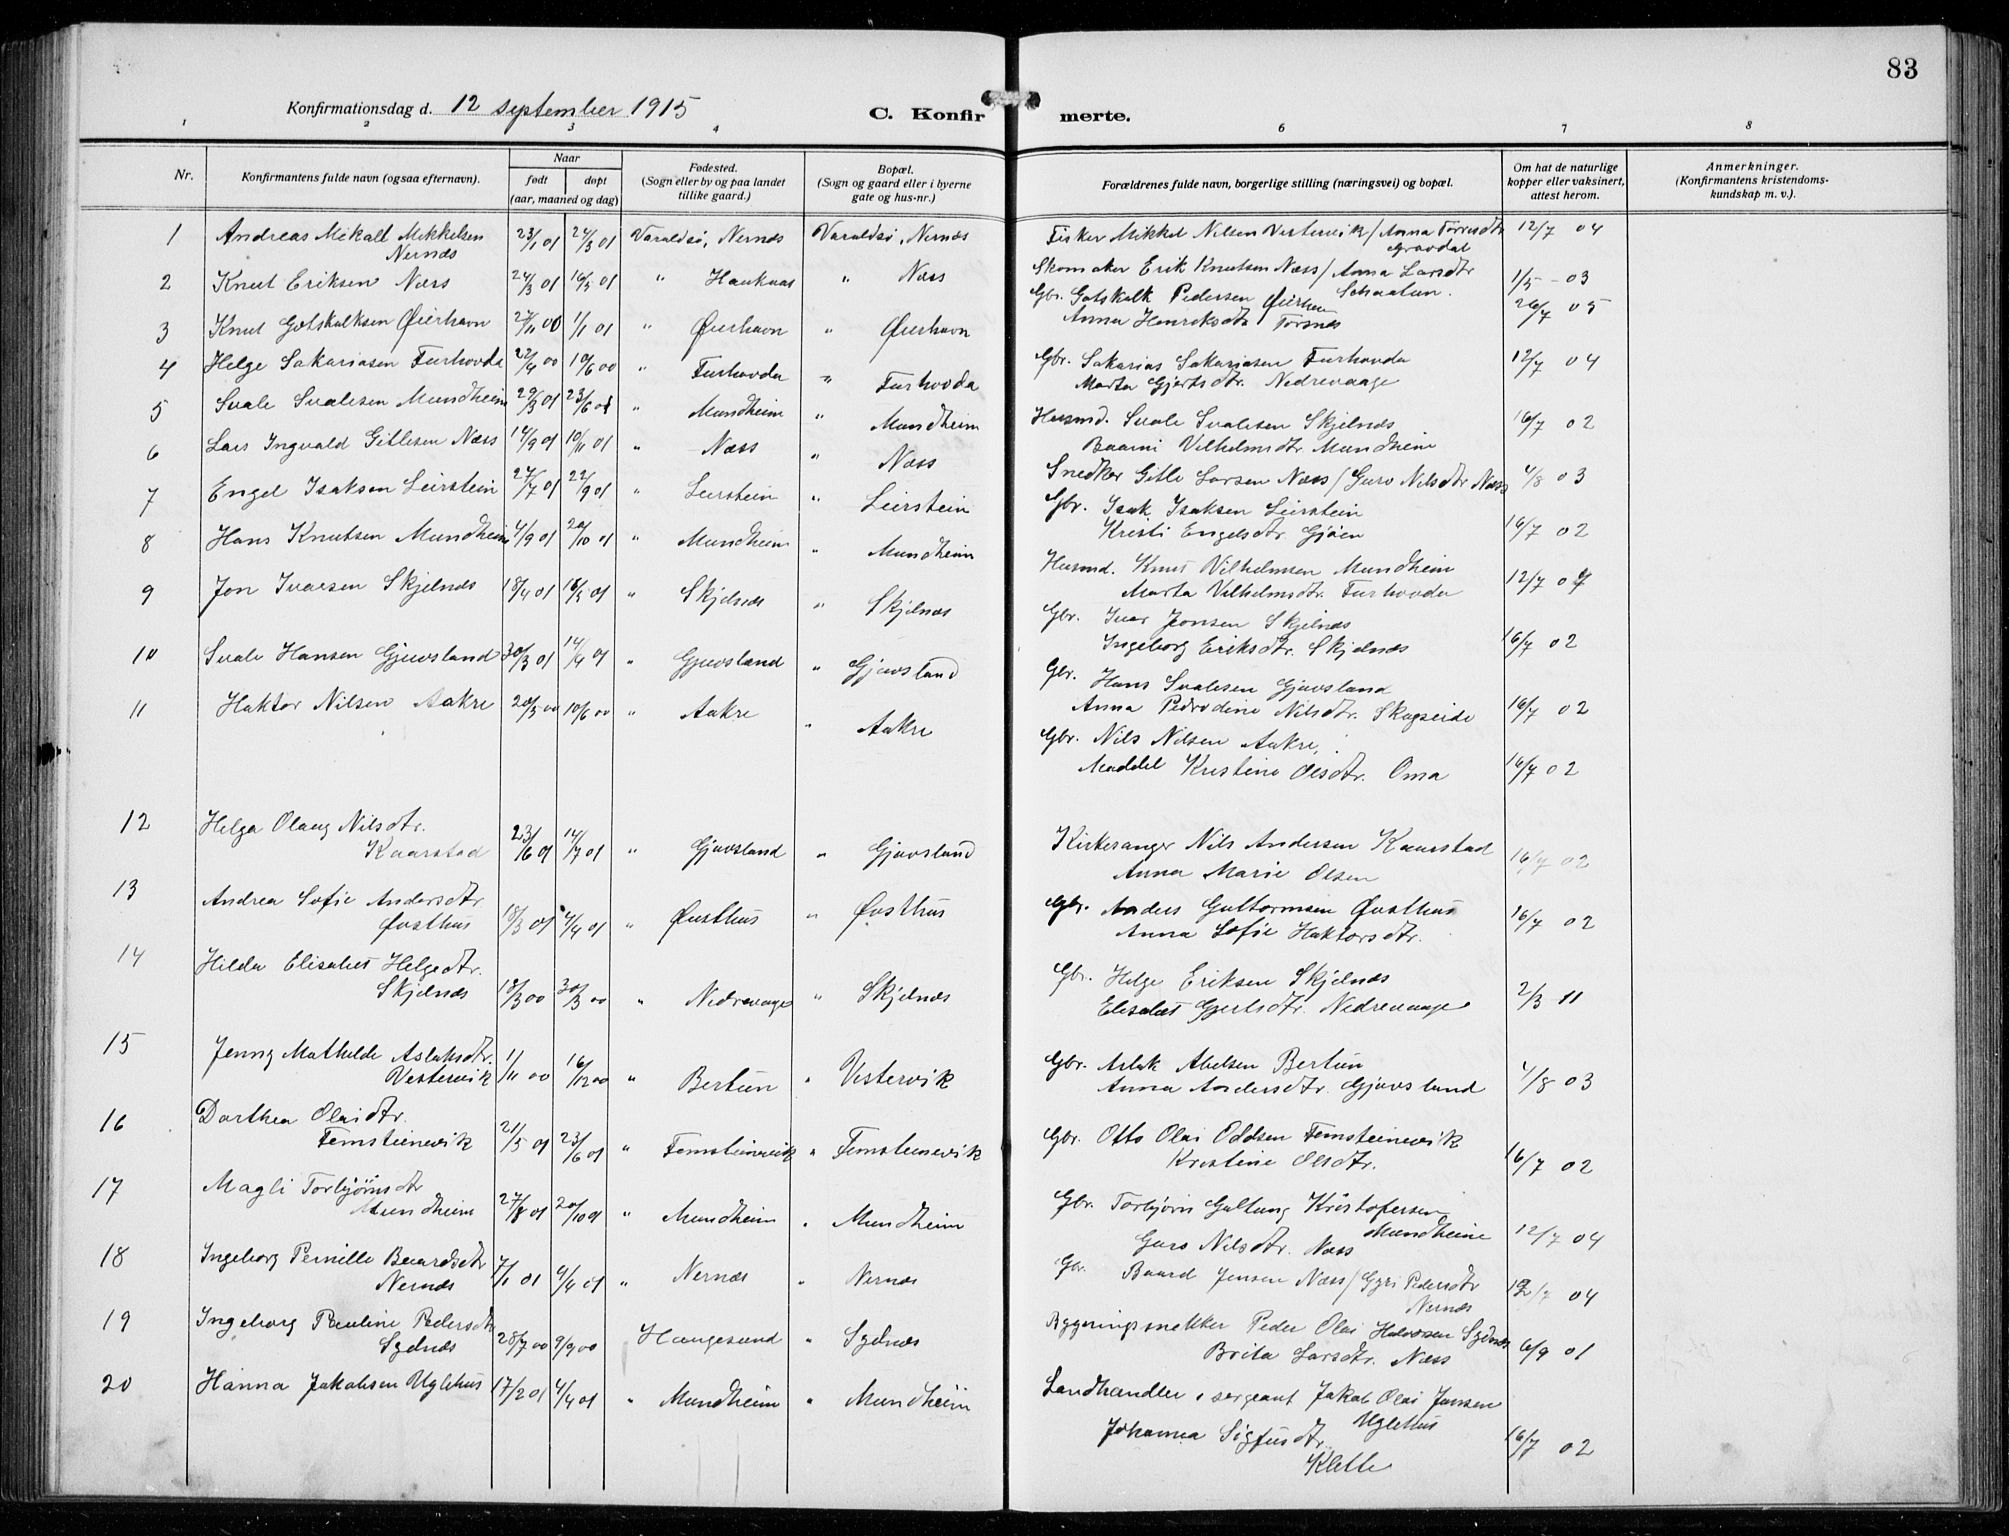 83
Konfirmationsdag d. 12 september 1915
C. Konfirmerte.
1 2 3 4 6 7 8
Nr.
Konfirmantens fulde navn (ogsaa efternavn).
Naar
født døpt
(aar, maaned og dag)
Fødested.
(Sogn eller by og paa landet
tillike gaard.)
Bopæl.
(Sogn og gaard eller i byerne
gate og hus-nr.)
Forældrenes fulde navn, borgerlige stilling (næringsvei) og bopæl.
Om hat de naturlige
kopper eller vaksinert,
attest herom.
Anmerkninger.
(Konfirmantens kristendoms-
kundskap m. v.).
1 Andreas Mikall Mikkelsen 23/1 01 24/3 01 Varaldsø, Nernæs Varaldsø, Nernæs Fisker Mikkel Nilsen Vestervik / Anna Torresdtr 12/7 04
Nernæs Gravdal
2 Knut Eriksen Næss 24/3 01 16/5 01 " Hauknæs " Næss Skomaker Erik Knutsen Næss / Anna Larsdtr 1/5 - 03
Schaatun.
3 Knut Gotskalksen Øierhavn 27/11 00 1/1 01 " Øierhavn " Øierhavn Gbr. Gotskalk Pedersen Øierhavn 26/7 05
Anna Henriksdtr Torsnes
4 Helge Sakariasen Furhovda 22/4 00 10/6 00 " Furhovda " Furhovda Gbr. Sakarias Sakariasen Furhovda 12/7 04
Marta Gjertsdtr. Nedrevaage
5 Svale Svalesen Mundheim 29/3 01 23/6 01 " Mundheim " Mundheim Husmd. Svale Svalesen Skjelnæs 16/7 02
Baarni Vilhelmsdtr. Mundheim
6 Lars Ingvald Gitlesen Næss 14/9 01 10/11 01 " Næss " Næss Snedker Gitle Larsen Næss / Guro Nilsdtr Næss 4/8 03
7 Engel Isaksen Leirstein 27/7 01 22/9 01 " Leirstein " Leirstein Gbr. Isak Isaksen Leirstein 16/7 02
Kristi Engelsdtr. Gjøen
8 Hans Knutsen Mundheim 4/9 01 20/10 01 " Mundheim " Mundheim Husmd. Knut Vilhelmsen Mundheim 12/7 04
Marta Vilhelmsdtr. Furhovda
9 Jon Ivarsen Skjelnæs 18/4 01 16/5 01 " Skjelnæs " Skjelnæs Gbr. Ivar Jonsen Skjelnæs 16/7 02
Ingeborg Eriksdtr. Skjelnæs
10 Svale Hansen Gjuvsland 30/3 01 14/4 01 " Gjuvsland " Gjuvsland Gbr. Hans Svalesen Gjuvsland 16/7 02
Anna Pedrodine Nilsdtr. Skogseide
11 Haktor Nilsen Aakre 20/5 00 10/6 00 " Aakre " Aakre Gbr. Nils Nilsen Aakre, 16/7 02
Maddel Kristine Olsdtr. Oma
12 Helga Olaug Nilsdtr. Kirkesanger Nils Andersen Kaarstad
Kaarstad 23/6 01 14/7 01 " Gjuvsland " Gjuvsland Anna Marie Olsen 16/7 02
13 Andrea Sofie Andersdtr. Gbr. Anders Guttormsen Øvsthus
Øvsthus 18/3 01 4/4 01 " Øvsthus " Øvsthus Anna Sofie Haktorsdtr. 16/7 02
14 Hilda Elisabet Helgedtr. Gbr. Helge Eriksen Skjelnæs
Skjelnæs 18/3 00 30/3 00 " Nedrevaage " Skjelnæs Elisabet Gjertsdtr. Nedrevaage 2/3 11
15 Jenny Mathilde Aslaksdtr. Gbr. Aslak Abelsen Bertun
Vestervik 1/11 00 16/12 00 " Bertun " Vestervik Anna Andersdtr. Gjuvsland 4/8 03
16 Dorthea Olaidtr. Gbr. Otto Olai Oddsen Femsteinevik
Femsteinevik 21/5 01 23/6 01 " Femsteinevik " Femsteinevik Kristine Olsdtr. 16/7 02
17 Magli Torbjørnsdtr Gbr. Torbjørn Galtung Kristofersen
Mundheim 27/8 01 20/10 01 " Mundheim " Mundheim Mundheim 12/7 04
Guro Nilsdtr. Næss
18 Ingeborg Pernille Baardsdtr Gbr. Baard Jensen Næss / Gyri Pedersdtr
Nernæs 7/1 01 4/4 01 " Nernæs " Nernæs Nernæs 12/7 04
19 Ingeborg Pauline Pedersdtr Bygningssnekker Peder Olai Halvorsen Sydnæs
Sydnæs 28/7 00 9/9 00 Haugesund " Sydnæs Brita Larsdtr. Næss 6/9 01
20 Hanna Jakobsen Uglehus 17/2 01 4/4 01 " Mundheim " Mundheim Landhandler, sergeant Jakob Olai Jansen
Uglehus
Johanna Sigfusdtr. 16/7 02
Klette